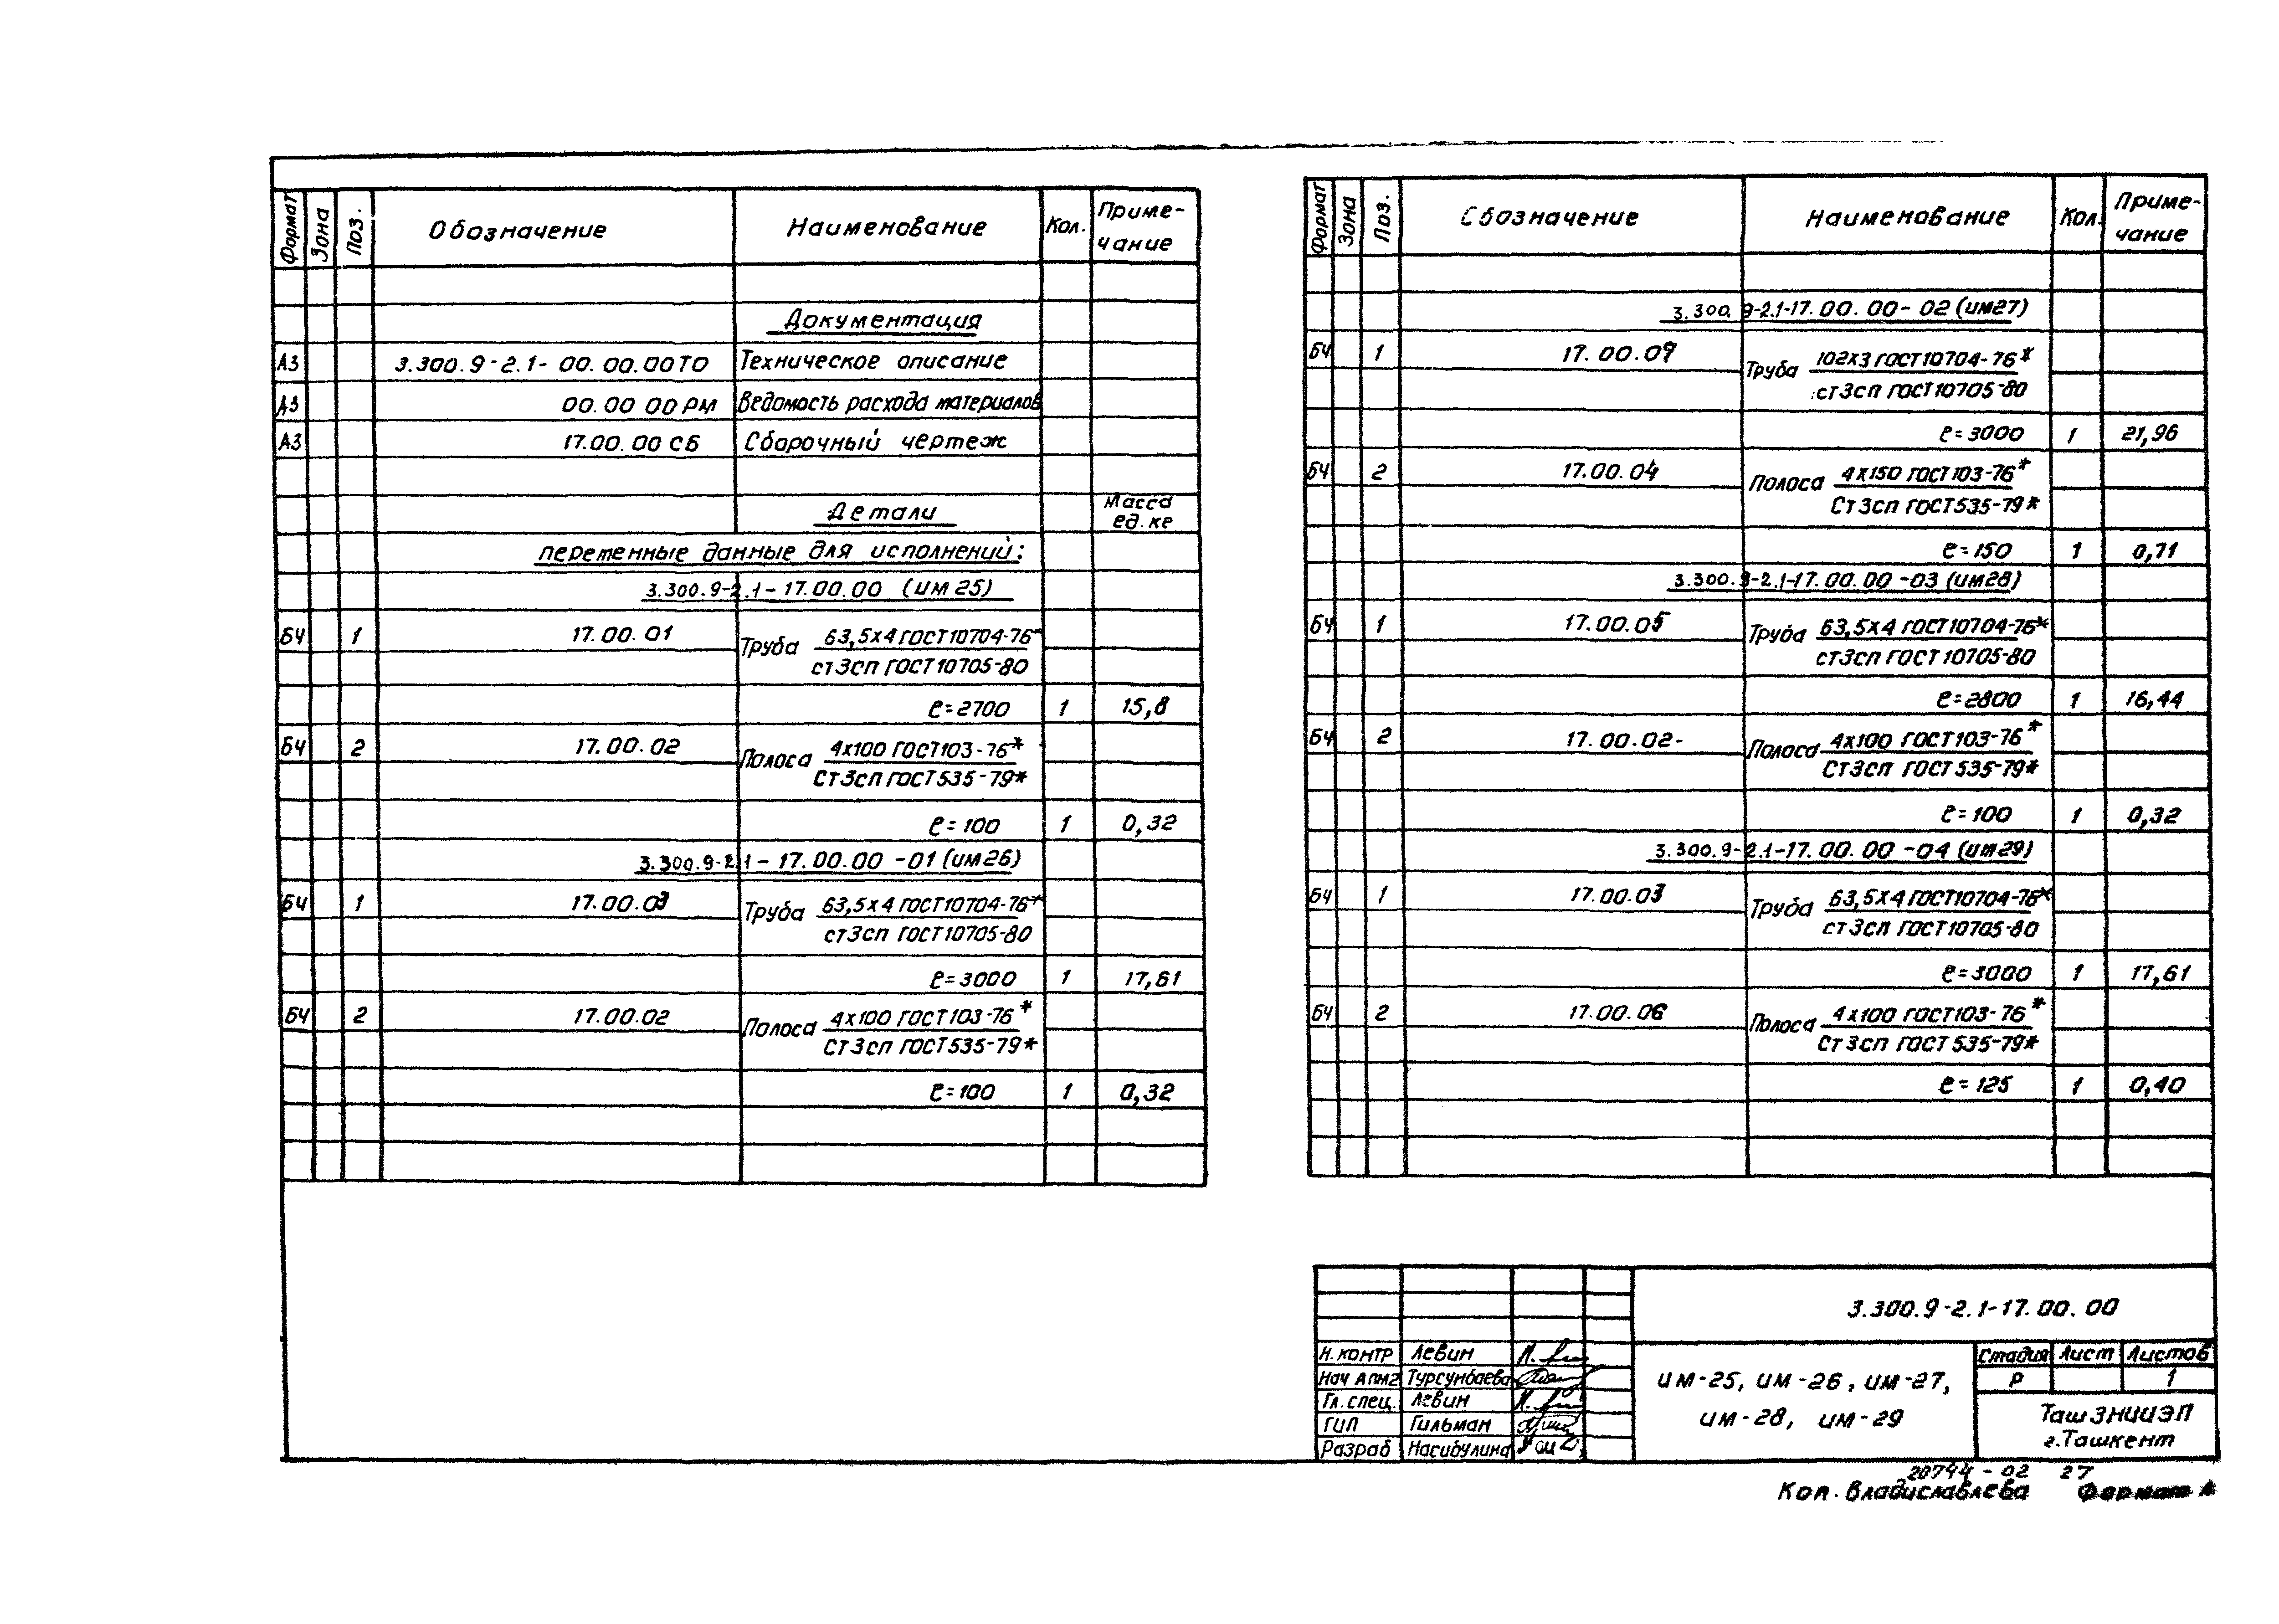 Формат Зона Поз. Обозначение Наименование Кол. Приме-
чание
Документация
А3 3.300.9-2.1-00.00.00ТО Техническое описание
А3 00.00 00 РМ Ведомость расхода материалов
А3 17.00.00 СБ Сборочный чертеж
Детали Масса
ед. ке
переменные данные для исполнений:
3.300.9-2.1-17.00.00 (им 25)
БЧ 1 17.00.01 Труба 63,5х4 ГОСТ10704-76*
ст3сп ГОСТ10705-80
ℓ=2700 1 15,8
БЧ 2 17.00.02 Полоса 4х100 ГОСТ103-76*
Ст3сп ГОСТ535-79*
ℓ=100 1 0,32
3.300.9-2.1-17.00.00-01 (им26)
БЧ 1 17.00.03 Труба 63,5х4 ГОСТ10704-76*
ст3сп ГОСТ10705-80
ℓ=3000 1 17,61
БЧ 2 17.00.02 Полоса 4х100 ГОСТ103-76*
Ст3сп ГОСТ535-79*
ℓ=100 1 0,32
Формат Зона Поз. Обозначение Наименование Кол. Приме-
чание
3.300.9-2.1-17.00.00-02 (им27)
БЧ 1 17.00.07 Труба 102х3 ГОСТ10704-76*
ст3сп ГОСТ10705-80
ℓ=3000 1 21,96
БЧ 2 17.00.04 Полоса 4х150 ГОСТ103-76*
Ст3сп ГОСТ535-79*
ℓ=150 1 0,71
3.300.9-2.1-17.00.00-03 (им28)
БЧ 1 17.00.05 Труба 63,5х4 ГОСТ10704-76*
ст3сп ГОСТ10705-80
ℓ=2800 1 16,44
БЧ 2 17.00.02- Полоса 4х100 ГОСТ103-76*
Ст3сп ГОСТ535-79*
ℓ=100 1 0,32
3.300.9-2.1-17.00.00-04 (им29)
БЧ 1 17.00.03 Труба 63,5х4 ГОСТ10704-76*
ст3сп ГОСТ10705-80
ℓ=3000 1 17,61
БЧ 2 17.00.06 Полоса 4х100 ГОСТ103-76*
Ст3сп ГОСТ535-79*
ℓ=125 1 0,40
3.300.9-2.1-17.00.00
Н.контр Левин
Нач АПМ2 Турсунбаева
Гл.спец. Левин
ГИП Гильман
Разраб Насибулина
им-25, им-26, им-27,
им-28, им-29
Стадия Лист Листов
Р 1
ТашЗНИИЭП
г.Ташкент
20794-02 27
Коп. Владиславлева Формат